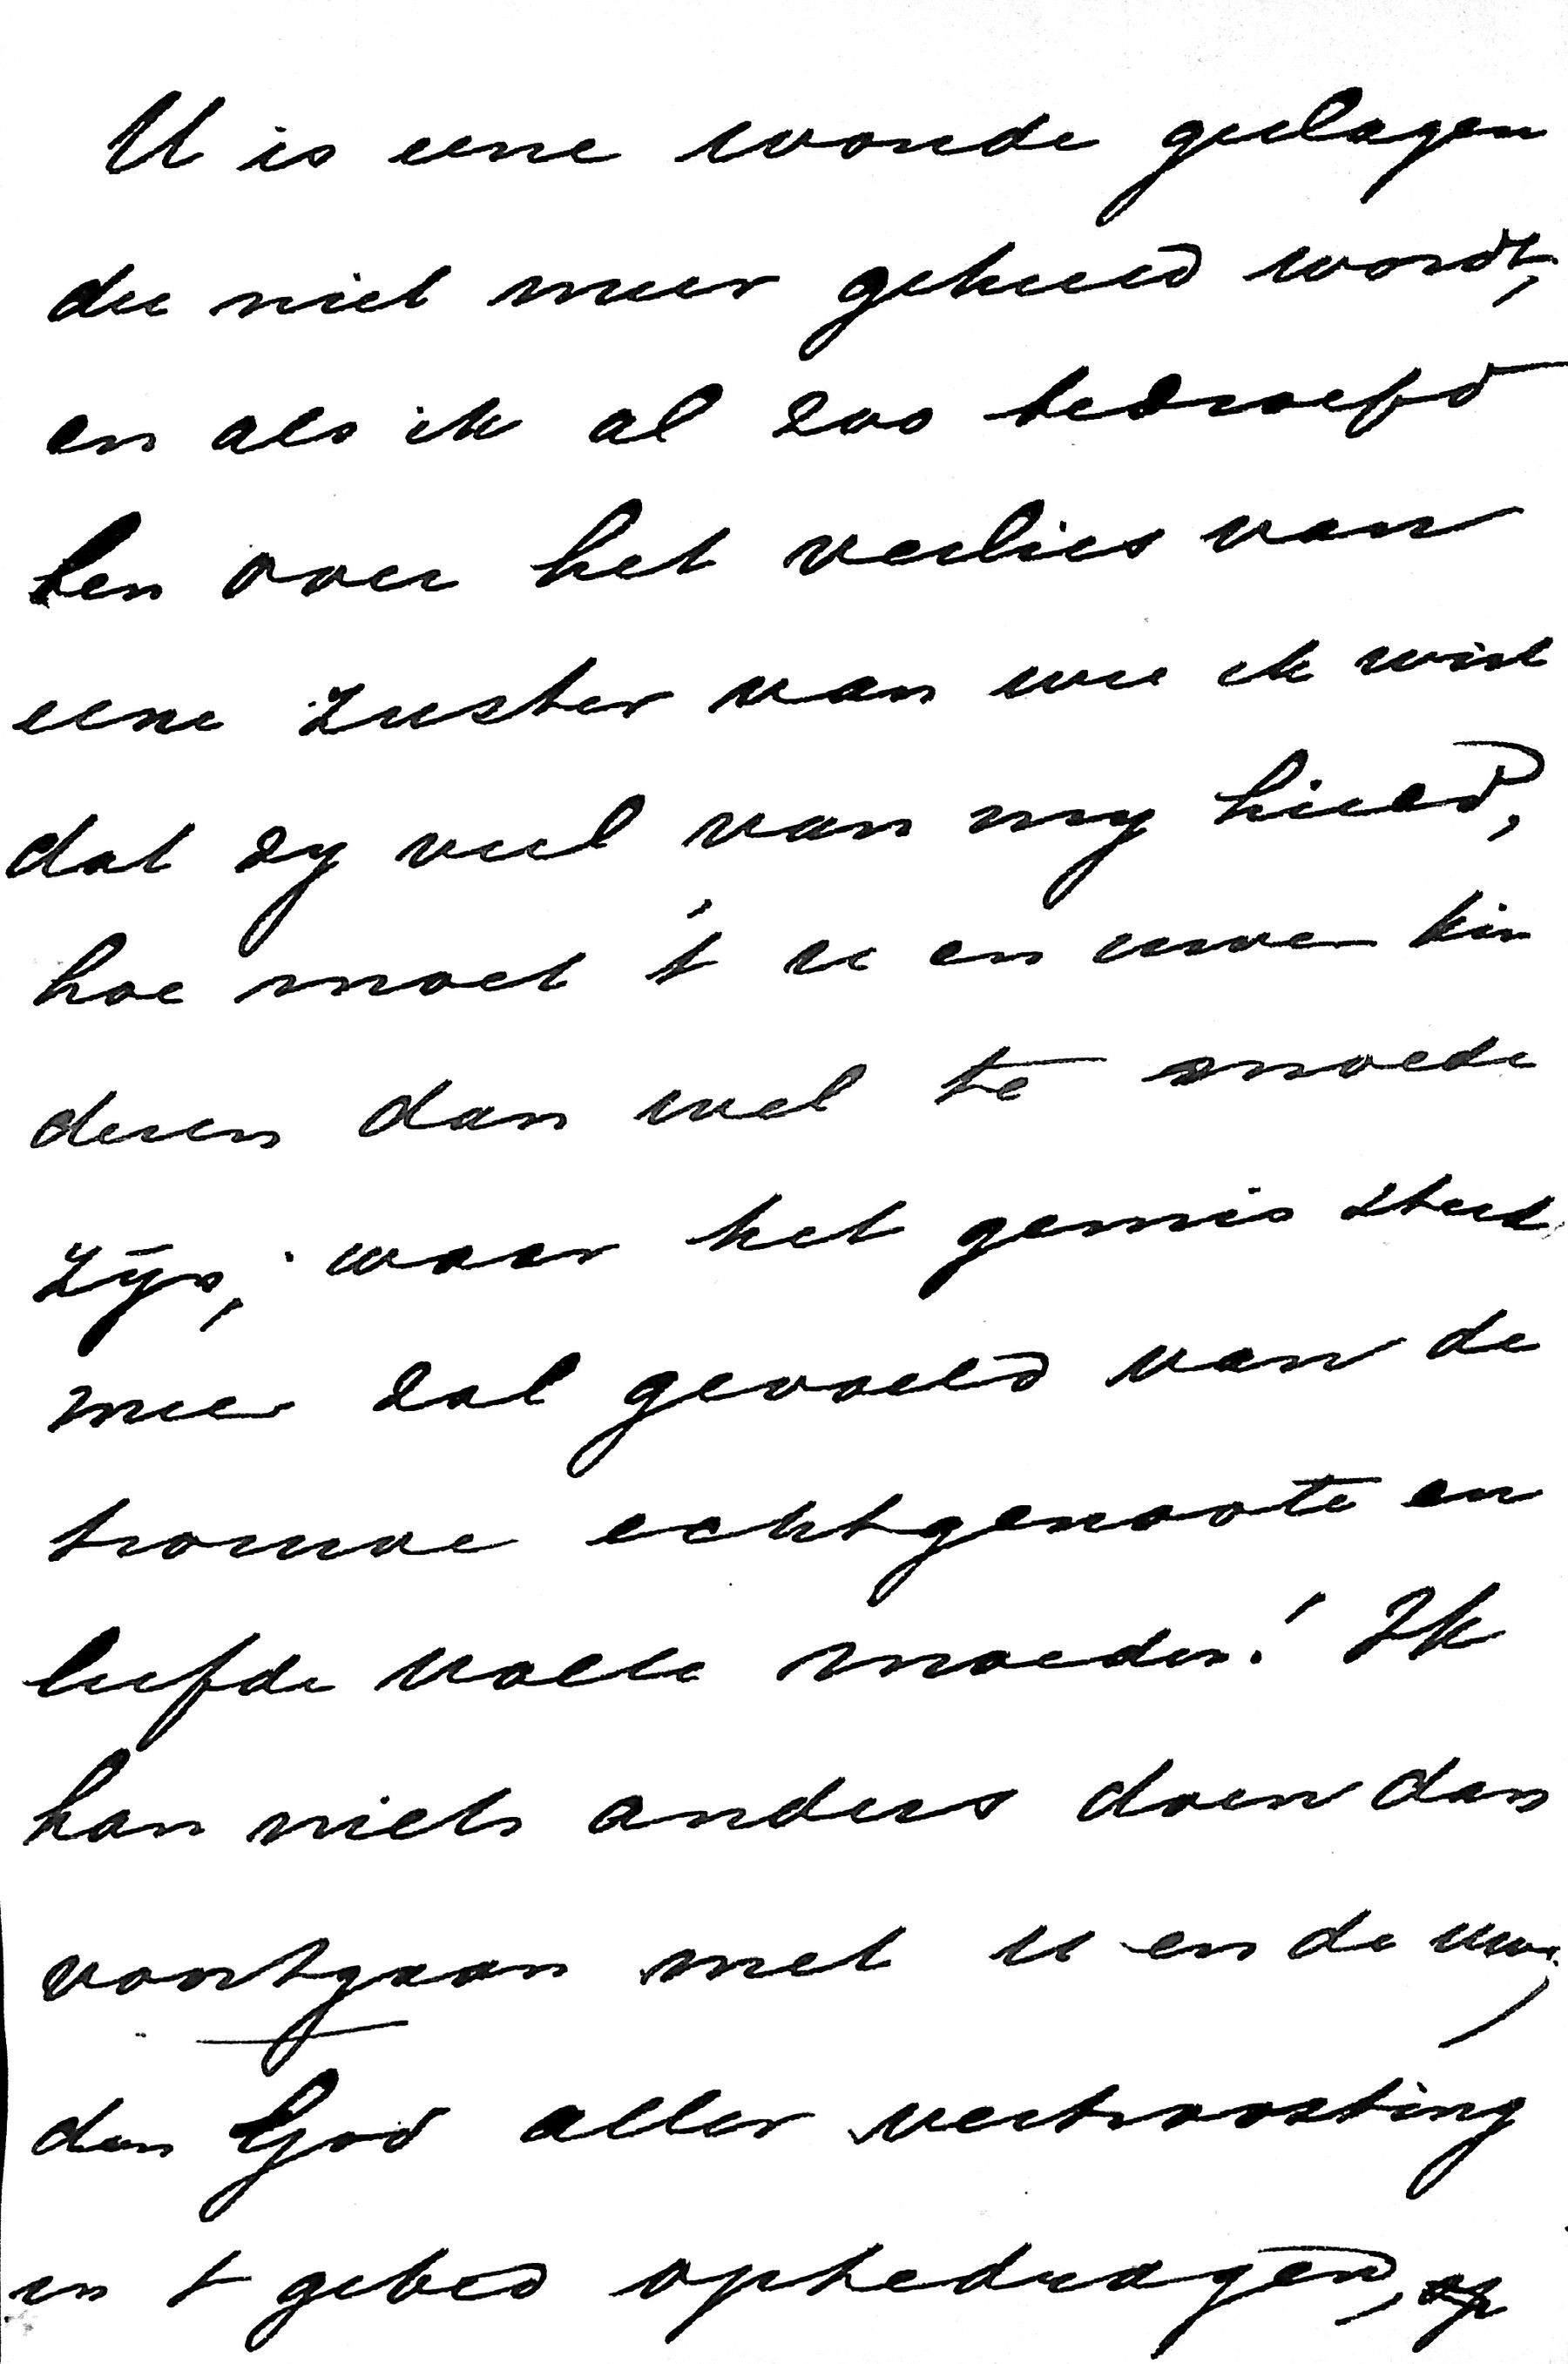 U is eene wonde geslagen
die niet meer geheeld wordt,
en als ik al zoo bedroefd
ben over het verlies van
eene zuster van wie ik wist
dat zy veel van my hield,
hoe moet 't u en uwe kin
deren dan wel te moede
zijn, waar het gemis steeds
meer zal gevoeld van de
trouwe echtgenoote en
liefde volle moeder! Ik
kan niets anders doen dan
voortgaan met u en de uwe,
den God aller vertroosting
in t gebed optedragen, op